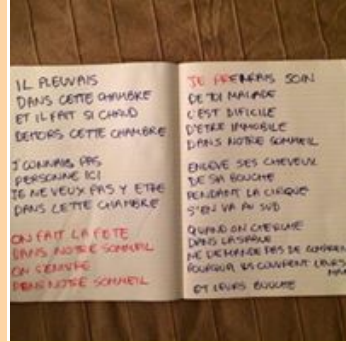 IL PLEUVAIS
DANS CETTE CHAMBRE
ET IL FAIT SI CHAUD
DEHORS CETTE CHAMBRE
J'CONNAIS PAS
PERSONNE ICI
JE NE VEUX PAS Y ETRE
DANS CETTE CHAMBRE
ON FAIT LA FETE
DANS NOTRE SOMMEIL
ON S'ENIVRE
DANS NOTRE SOMMEIL
JE PRENRAIS SOIN
DE TOI MALADE
C'EST DIFICILE
D'ETRE IMMOBILE
DANS NOTRE SOMMEIL
ENLEVE SES CHEVEUX
DE SA BOUCHE
PENDANT LA CIRQUE
S'EN VA AU SUD
QUAND ON CHERCHE
DANS
NE DEMANDE PAS DE
POURQUOI ILS COUVRENT LEURS
ET LEURS BOUCHE